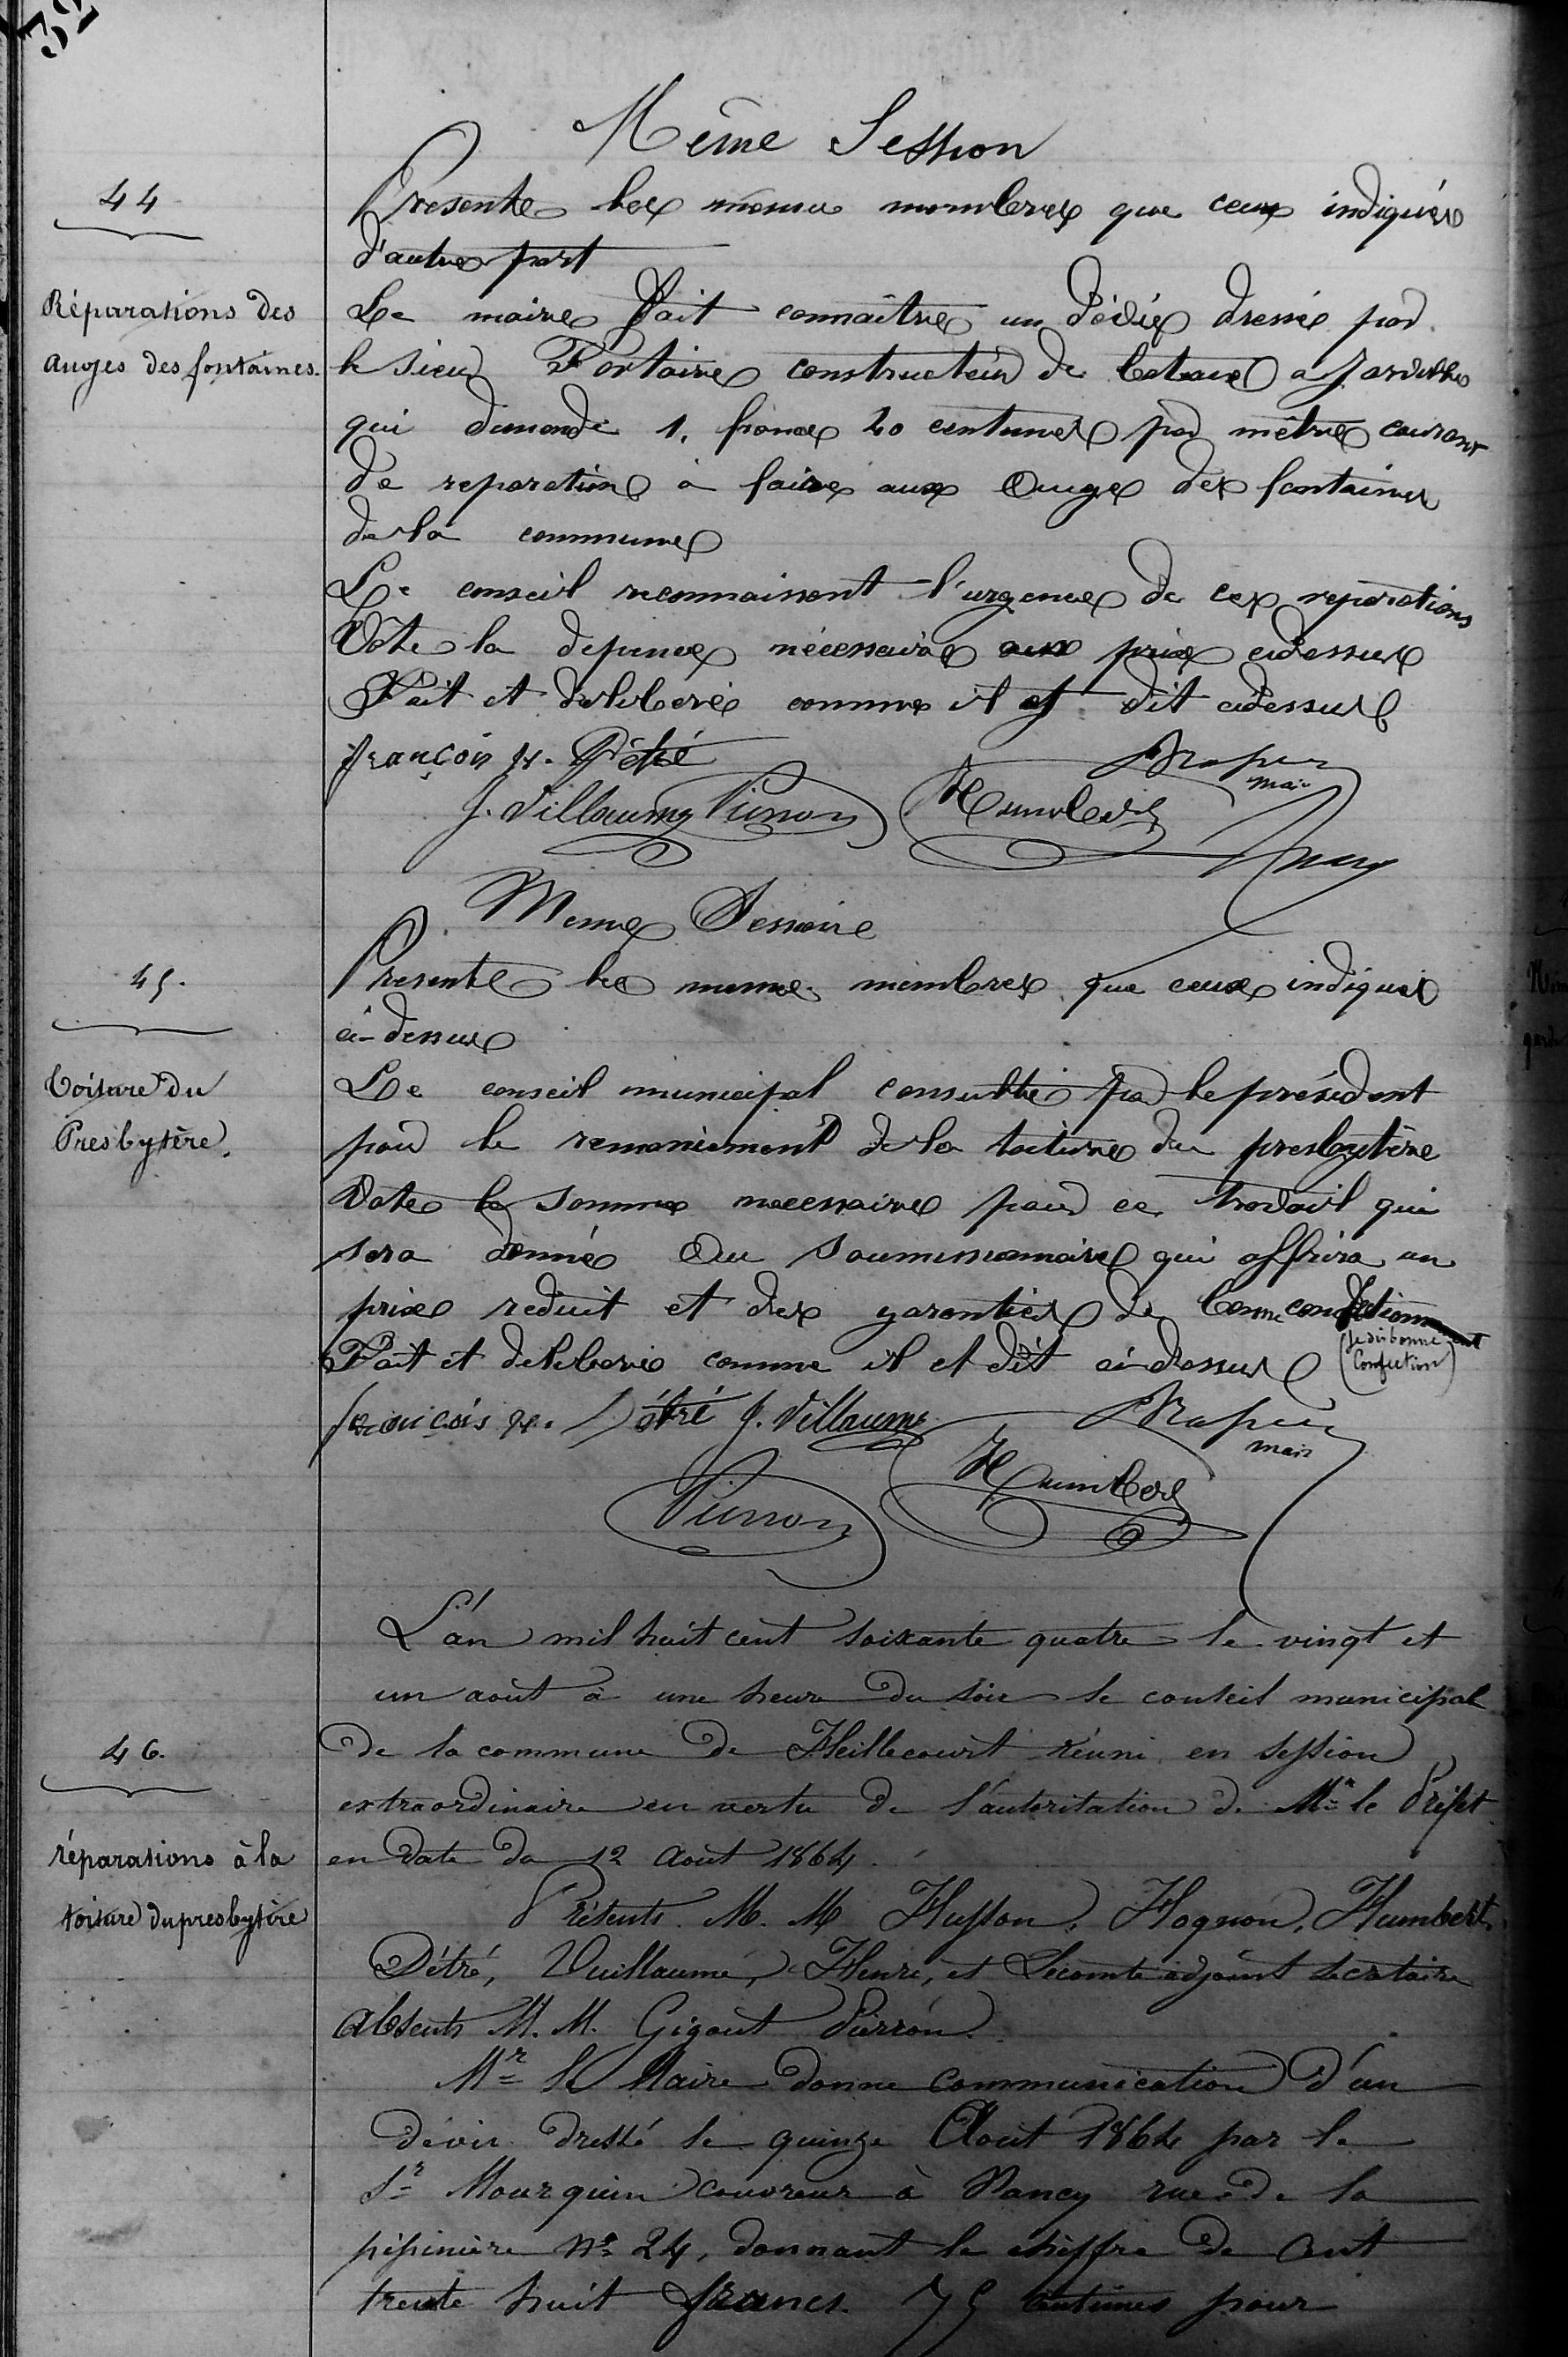 Même Session
44
Presente les memes membres que ceux indiqués
d'autre part
Réparations des
auges des fontaines.
Le maire fait connaître un dévis dressé par
le sieur Fontaine constructeur de bateaux a Jarville
qui demande 1, franc 20 centimes par mètre courant
de reparations à faire aux auges des fontaines
de la commune
Le conseil reconnaissant l'urgence de ces reparations
Vote la depence nécessaire aux prix cidessus
Fait et deliberé comme il est dit cidessus
françois n. Détré
maire
J. Villaume Pierron Humbert
Meme Session
45.
Presente les meme membres que ceux indiqués
ci-dessus
Toiture du
Presbytère.
Le conseil municipal consulté par le président
pour le remaniement de la toiture du presbytère
Vote la somme necessaire pour ce travail qui
sera donné au soumissionnaire qui offrira un
prix reduit et des garanties de bonne conditionnement
(Je dis bonne
Confection)
Fait et deliberé comme il est dit ci-dessus
françois n. Détré J. Villaume
maire
Pierron Humbert
L'an mil huit cent soixante quatre le vingt et
un août à une heure du soir le conseil municipal
46.
de la commune de Heillecourt réuni en session
extraordinaire en vertu de l'autorisation de Mr le Préfet
en date du 12 Août 1864.
réparations à la
toiture du presbytère
Présents M. M Husson, Hognon, Humbert,
Détré, Vuillaume, Henri, et Lecomte adjoint secretaire
absents M. M. Gigout Pierron.
Mr le Maire donne communication d'un
dévis dressé le quinze Aout 1864 par le
Sr Mourquin couvreur à Nancy rue de la
pépinière No 24, donnant le chiffre de Cent
trente huit francs 75 centimes pour